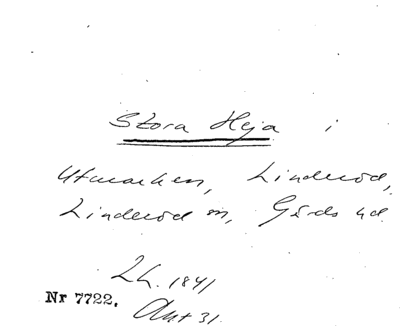 Stora Heja i
Utmarken, Linderöd,
Linderöd sn, Gärds hd.
Lh. 1841
Nr 7722. Akt 31.